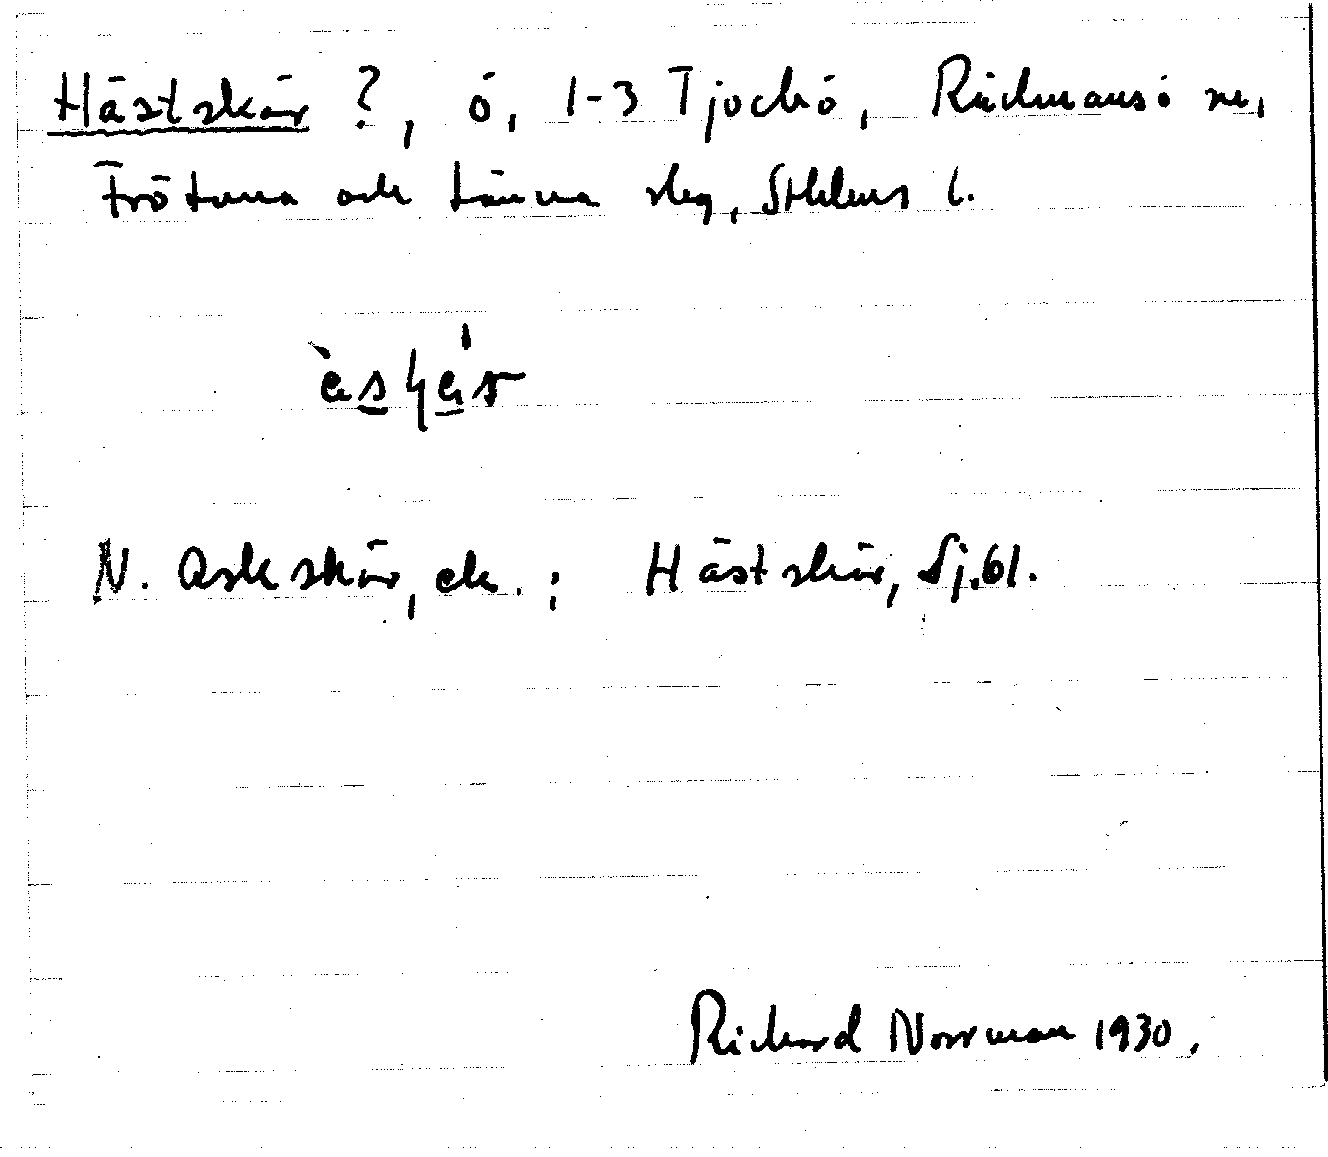 Hästskär ?, ö, 1-3 Tjockö, Rådmansö sn,
Frötuna och Länna skg, Sthlms l.
N. Askskär, ek. ; Hästskär, Sj.61.
Richard Norrman 1930.